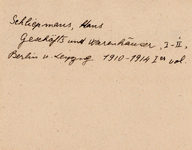 Schliepmann, Hans
Geschäfts und Warenhäuser, I-II,
Berlin u. Leipzig 1910-1914 I vol